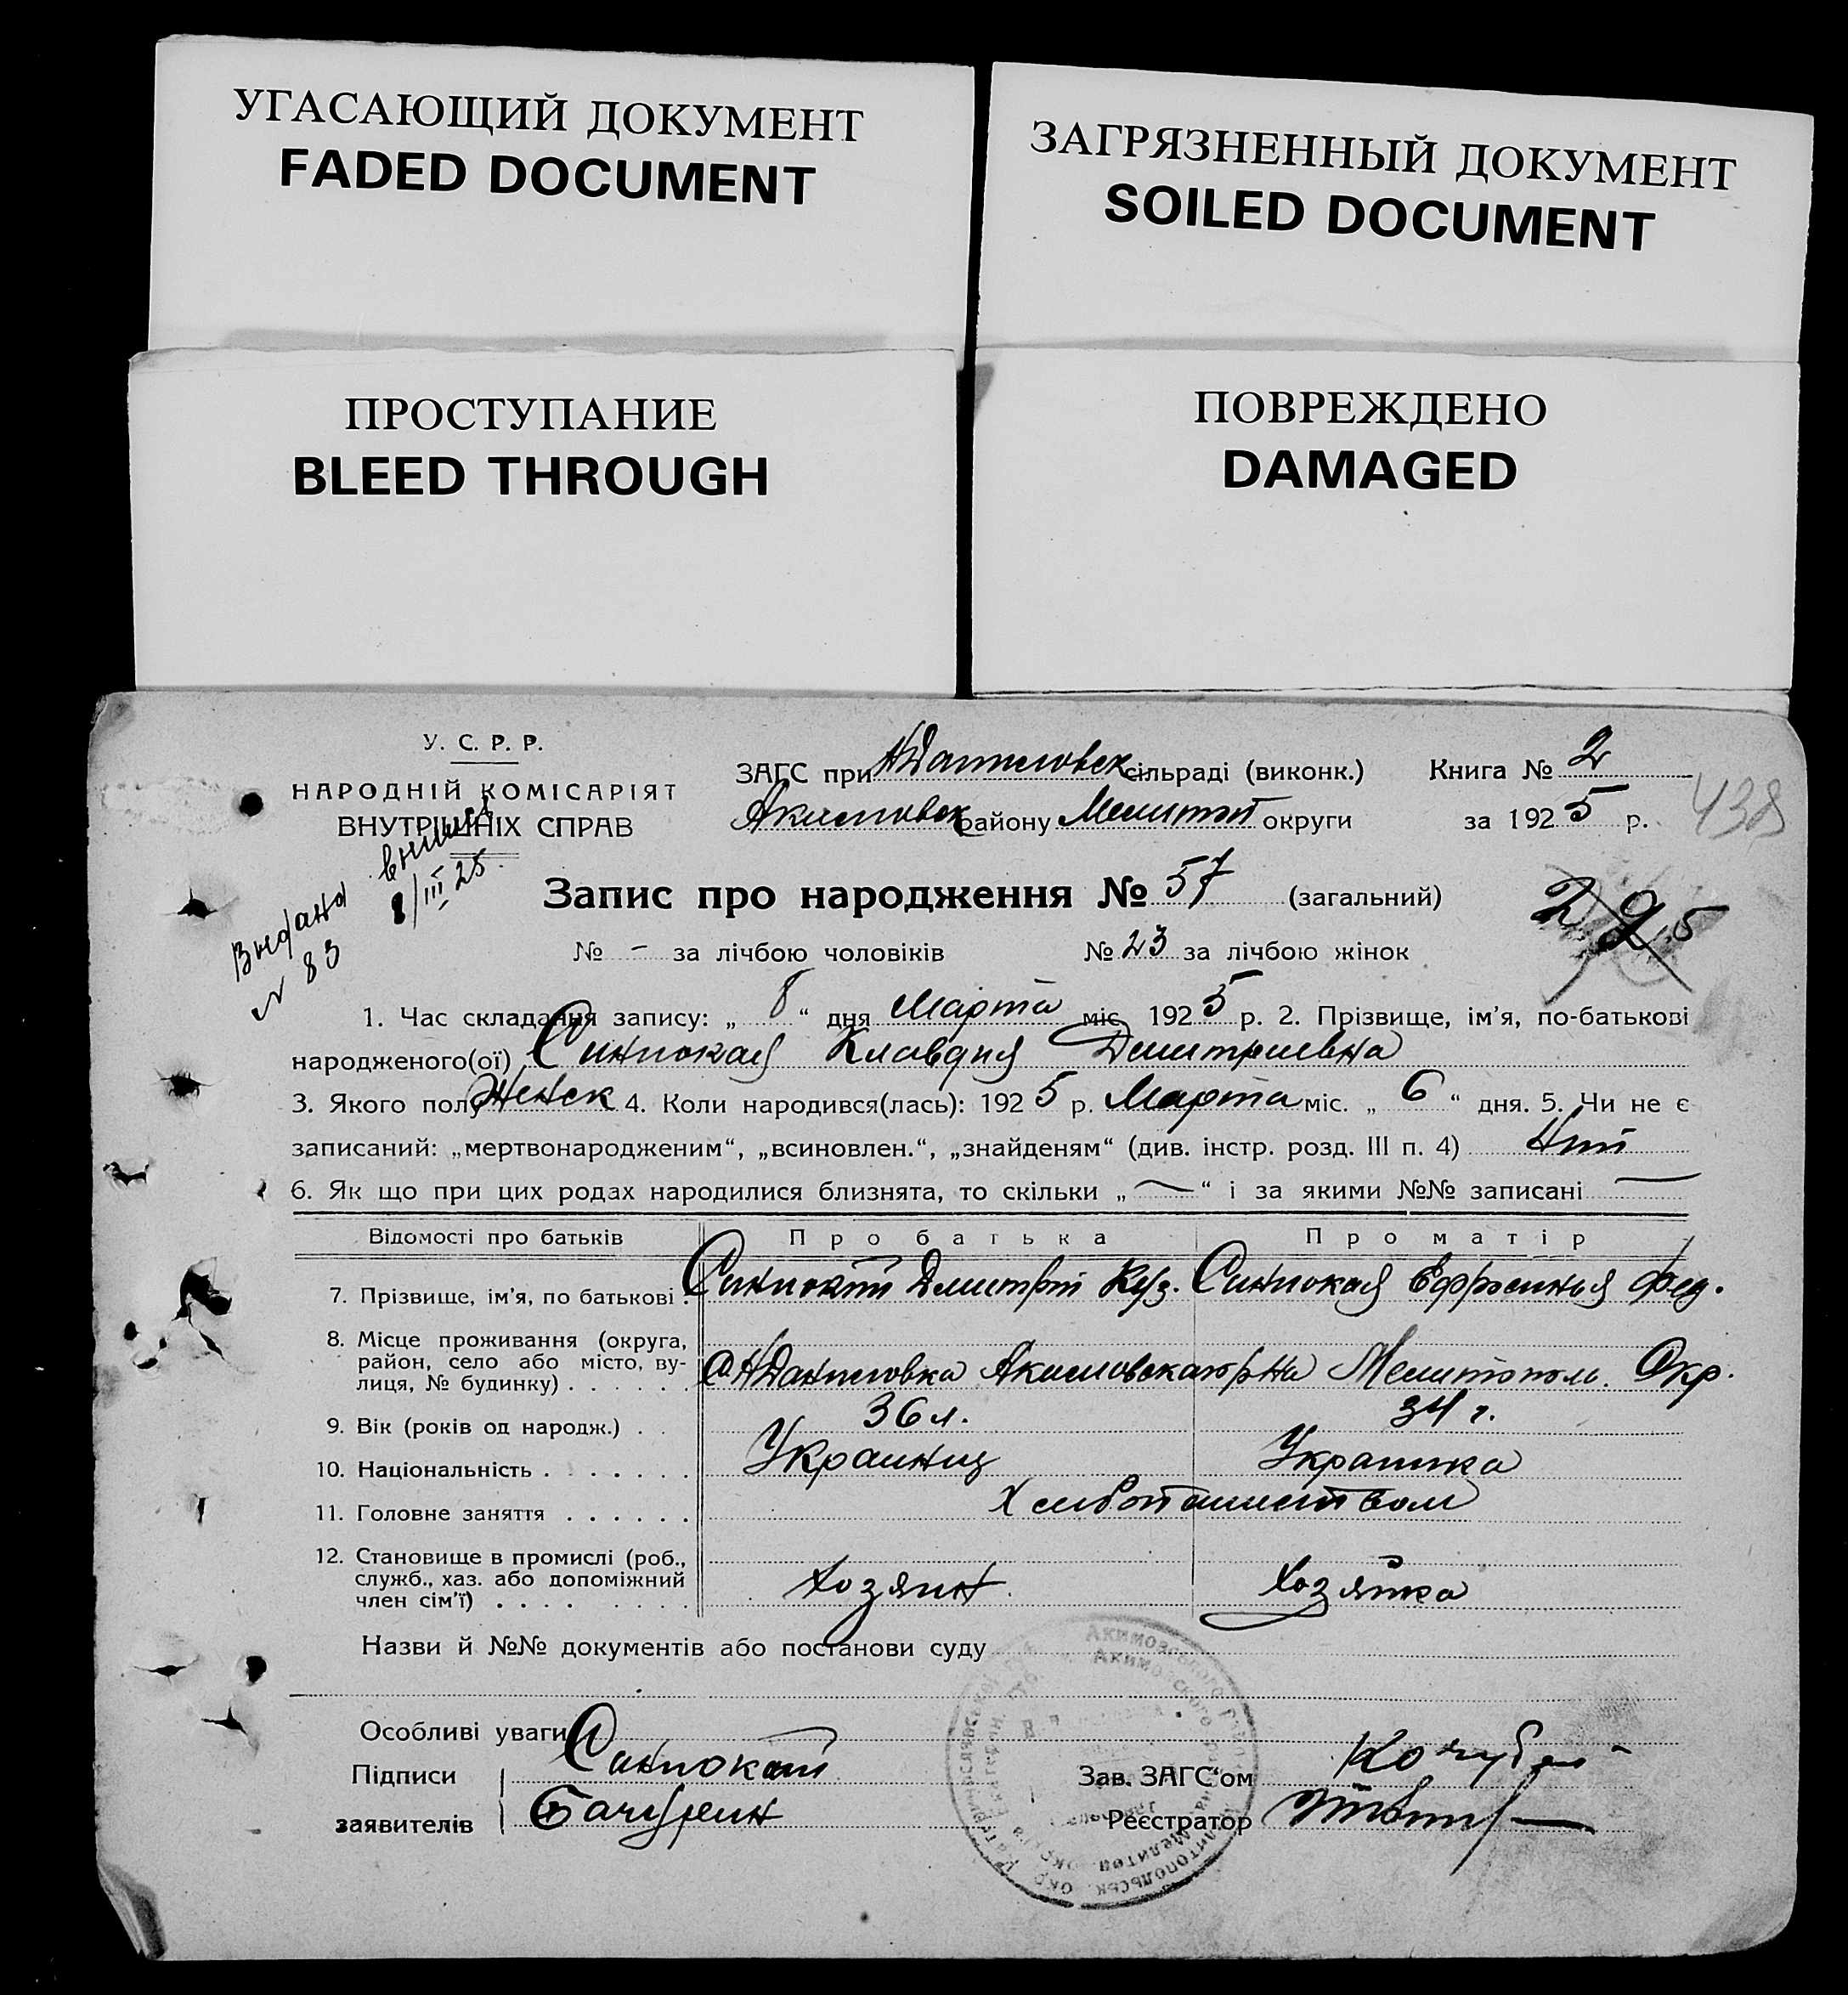 УГАСАЮЩИЙ ДОКУМЕНТ
FADED DOCUMENT
ЗАГРЯЗНЕННЫЙ ДОКУМЕНТ
SOILED DOCUMENT
ПРОСТУПАНИЕ
BLEED THROUGH
ПОВРЕЖДЕНО
DAMAGED
У. С. Р. Р.
НАРОДНІЙ КОМІСАРІЯТ
ВНУТРІШНІХ СПРАВ
ЗАГС при НДаниловск сільраді (виконк.) Книга № 2
Акимовск району Мелитоп округи за 1925 р.
438
Выдана
№ 83
8/III 25
Запис про народження № 57 (загальний)
295
№ - за лічбою чоловіків № 23 за лічбою жінок
1. Час складання запису: „ 8 “ дня Марта міс. 1925 р. 2. Прізвище, ім'я, по-батькові
народженого(ої) Синиокая Клавдия Дмитриевна
3. Якого полу Женск 4. Коли народився(лась): 1925 р. Марта міс. „ 6 “ дня. 5. Чи не є
записаний: „мертвонародженим“, „всиновлен.“, „знайденям“ (див. інстр. розд. III п. 4) Нет
6. Як що при цих родах народилися близнята, то скільки „ — “ і за якими №№ записані —
Відомості про батьків Про батька Про матір
7. Прізвище, ім'я, по батькові . Синиокий Дмитрий Куз. Синиокая Ефросинья Фед.
8. Місце проживання (округа,
район, село або місто, ву-
лиця, № будинку) . . . . . . с. НДаниловка Акимовского р-на Мелитополь. Окр.
9. Вік (років од народж.) . . 36 л. 34 г.
10. Національність . . . . . . . Украинец Украинка
11. Головне заняття . . . . . . Хлебопашеством
12. Становище в промислі (роб.,
служб., хаз. або допоміжний
член сім'ї) . . . . . . . . Хозяин Хозяйка
Назви й №№ документів або постанови суду
Особливі уваги
Підписи Синиокий Зав. ЗАГС'ом Кочубей
заявителів Бачурин Реєстратор